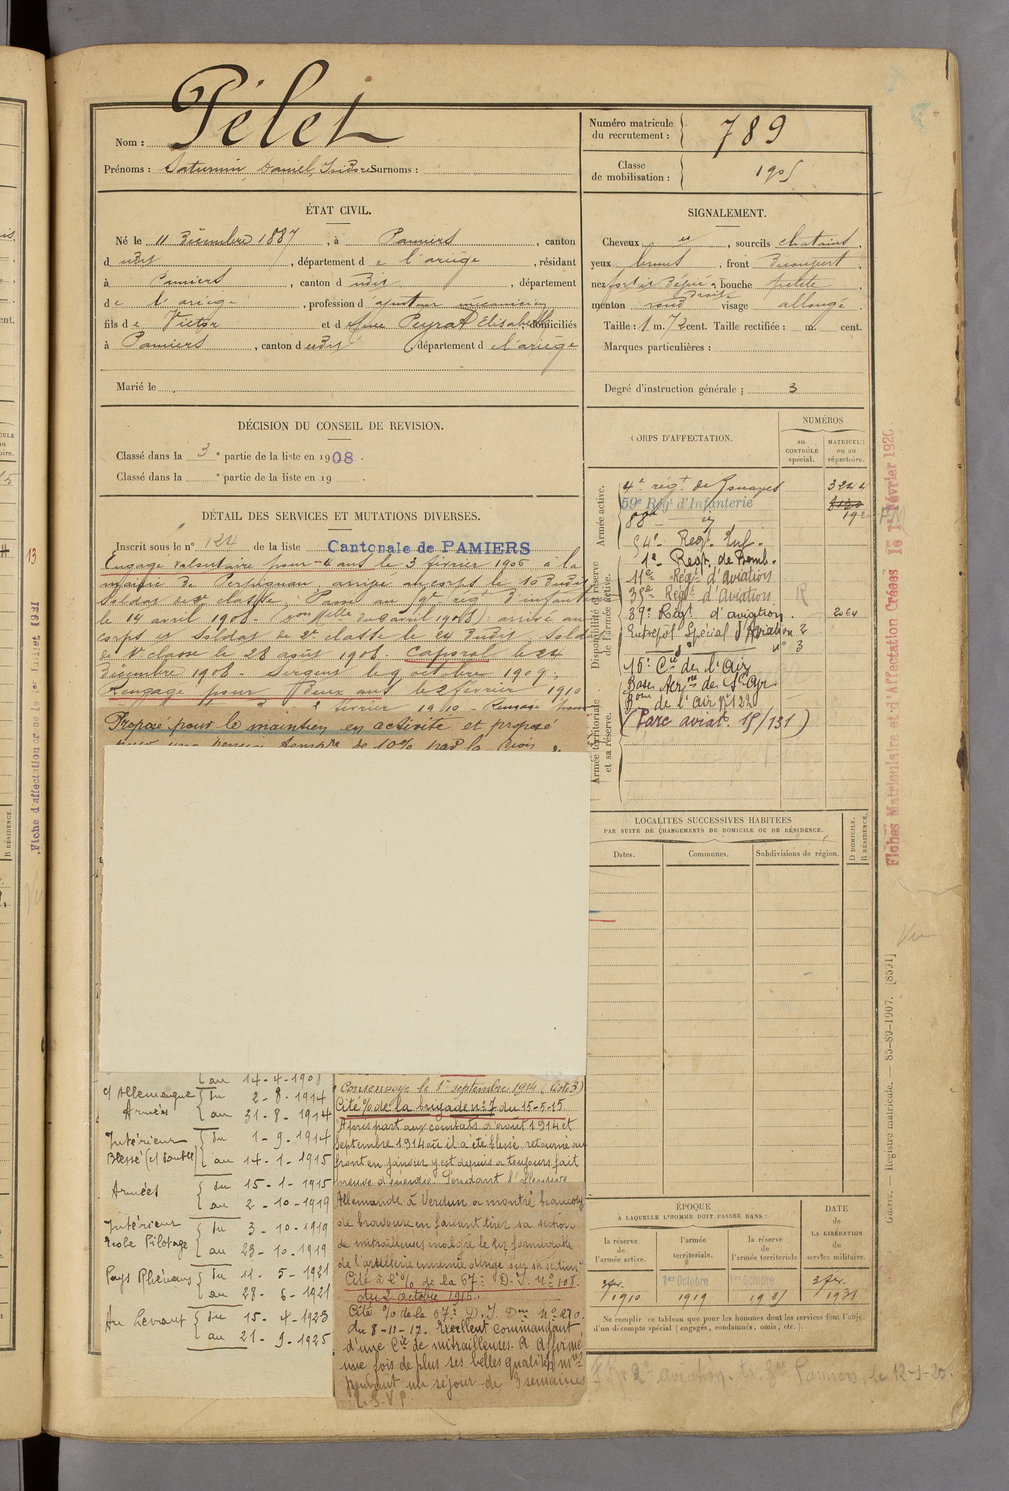 Pélet
Nom :
Prénoms : Saturnin, Daniel, Isidore Surnoms :
Numéro matricule du recrutement : 789
Classe de mobilisation : 1905
ÉTAT CIVIL.
Né le 11 Décembre 1887, à Pamiers, canton
d udit, département de l'ariège, résidant
à Pamiers, canton d udit, département
de l'ariège, profession d'ajusteur mécanicien
fils de Victor et de Peyrat Elisabeth domiciliés
à Pamiers, canton dudit, département de l'ariège
Marié le
SIGNALEMENT.
Cheveux et, sourcils chatains,
yeux, front Découvert,
nez bouche petite
menton rond visage allongé.
Taille : 1 m. 72 cent. Taille rectifiée : m. cent.
Marques particulières :
Degré d'instruction générale : 3
DÉCISION DU CONSEIL DE REVISION.
Classé dans la 3e partie de la liste en 1908.
Classé dans la e partie de la liste en 19
DÉTAIL DES SERVICES ET MUTATIONS DIVERSES.
Inscrit sous le n° 124 de la liste Cantonale de PAMIERS
Engagé volontaire pour 4 ans le 3 février 1906 à la
mairie de Perpignan, arrivé au corps le 10 dudit
Soldat de classe. Passé au regt d'infanterie
le 14 avril 1908. arrivé au
corps et soldat de 2e classe le 24 dudit, Soldat
de 1e classe le 28 août 1908. Caporal le 24
Décembre 1908. Sergent le 9 octobre 1909.
Rengagé pour Deux ans le 2 février 1910
février 1910 - Rengagé
Proposé pour le maintien en activité et proposé
de 10% par la
CORPS D'AFFECTATION.
NUMÉROS
au CONTRÔLE spécial.
MATRICULE ou au répertoire.
Armée active.
Disponibilité et réserve de l'armée active.
Armée territoriale et sa réserve.
4e régt de Zouaves
59e Régt d'Infanterie
88e d°
192
54e Regt Inf.
1er Regt. de Bomb.
11e Régt d'aviation
35e Regt d'Aviation
39e Régt d'aviation 2064
Entrepôt Spécial d'Aviation 2
d° n° 3
15e Cie de l'Air
Base Aérne de St Cyr
Bon de l'air n° 122
(Parc aviat. 15/131)
LOCALITÉS SUCCESSIVES HABITÉES
PAR SUITE DE CHANGEMENTS DE DOMICILE OU DE RÉSIDENCE.
Dates.
Communes.
Subdivisions de région.
D DOMICILE. R RÉSIDENCE.
au 14-4-1908
Ct Allemagne du 2-8-1914
Armées au 31-8-1914
Intérieur du 1-9-1914
Blessé au 14-1-1915
Armées du 15-1-1915
au 2-10-1919
Intérieur du 3-10-1919
Ecole Pilotage au 23-10-1919
Pays Rhénans du 11-5-1921
au 28-6-1921
Au Levant du 15-4-1923
au 21-9-1925
Consenvoye le 1er septembre 1914
Cité % de la brigade n° 7 du 15-5-15.
Après part aux combats d'août 1914 et
Septembre 1914 où il a été blessé, retourné au
front en janvier y est depuis a toujours fait
preuve d'énergie. Pendant l'offensive
Allemande à Verdun a montré beaucoup
de bravoure en faisant tirer sa section
de mitrailleuses malgré le tir formidable
de l'artillerie ennemie dirigé sur sa section
Cité à l'% de la 67e D.I. N° 108.
du 2 octobre 1916.
Cité % de la 67e D.I. n° 270.
du 8-11-17. Excellent commandant
d'une Cie de mitrailleuses. A affirmé
une fois de plus ses belles qualités
pendant un séjour de 3 semaines
T.S.V.P.
ÉPOQUE
À LAQUELLE L'HOMME DOIT PASSER DANS :
la réserve de l'armée active.
l'armée territoriale.
la réserve de l'armée territoriale
DATE de LA LIBÉRATION du service militaire.
3 fév. 1910
1er Octobre 1919
1er Octobre
3 fév. 1931
Ne remplir ce tableau que pour les hommes dont les services font l'objet
d'un décompte spécial (engagés, condamnés, omis, etc.).
Pamiers, le 12-1-20
Fiches Matriculaire et d'Affectation Créées le 1er Février 1926
Guerre. — Registre matricule. — 85-89-1907. [8591]
Vu
Fiche d'affectation créée le 1er Juillet 1931
13